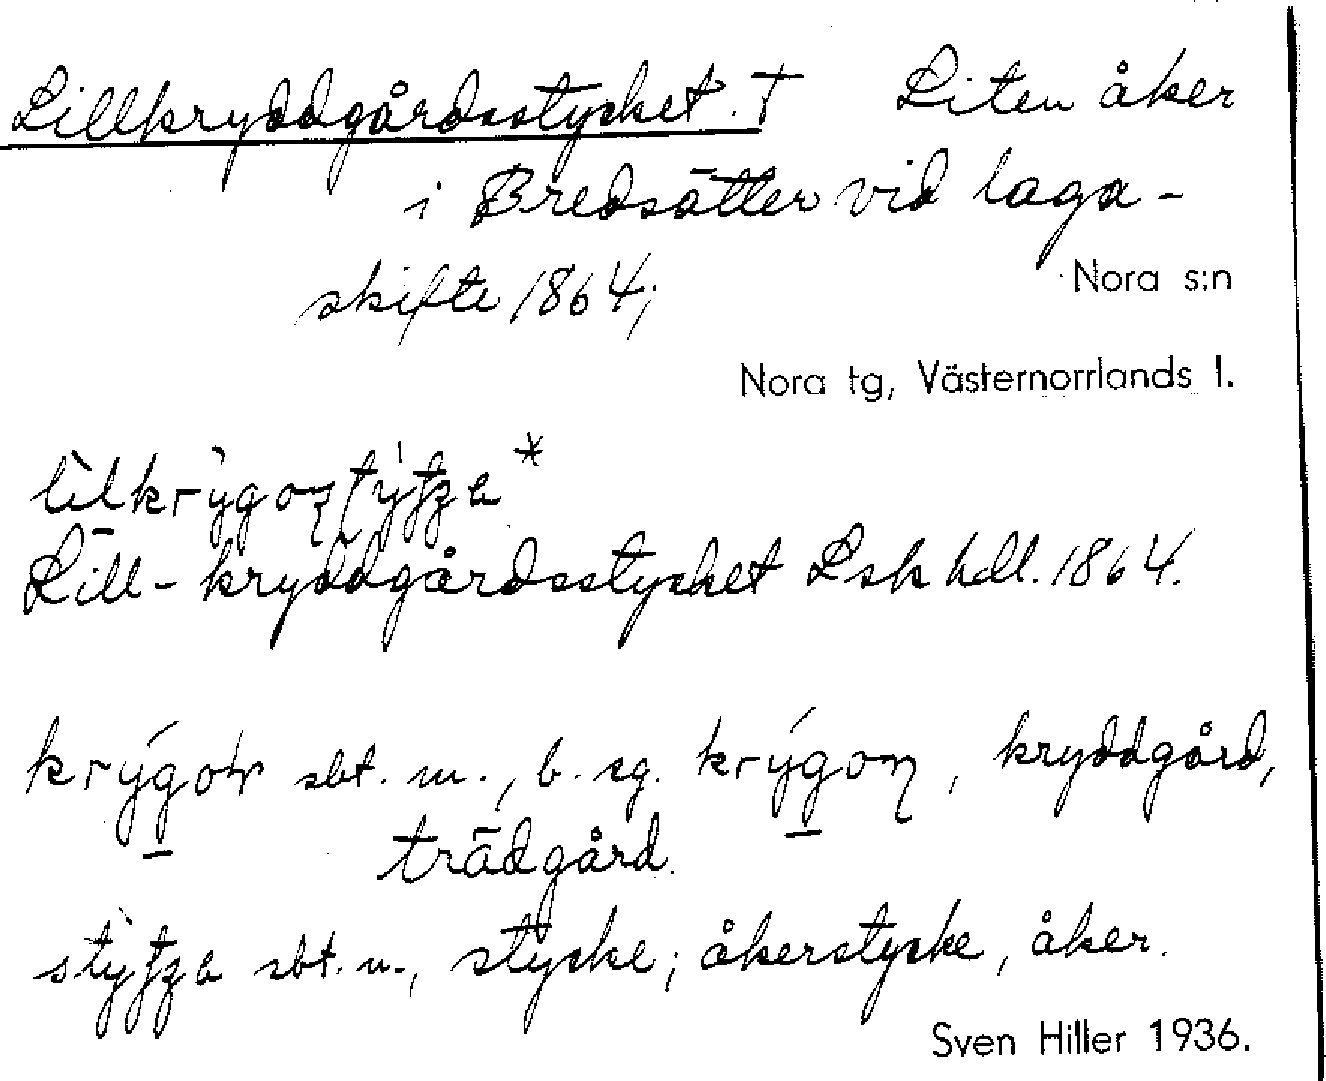 Lillkryddgårdsstycket. † Liten åker
i Bredsätter vid laga-
skifte 1864;
Nora s:n
Nora tg, Västernorrlands l.
Lill-kryddgårdsstycket Lsk hdl. 1864.
sbt. m., b. sg. kryddgård,
trädgård.
sbt. n., stycke; åkerstycke, åker.
Sven Hiller 1936.